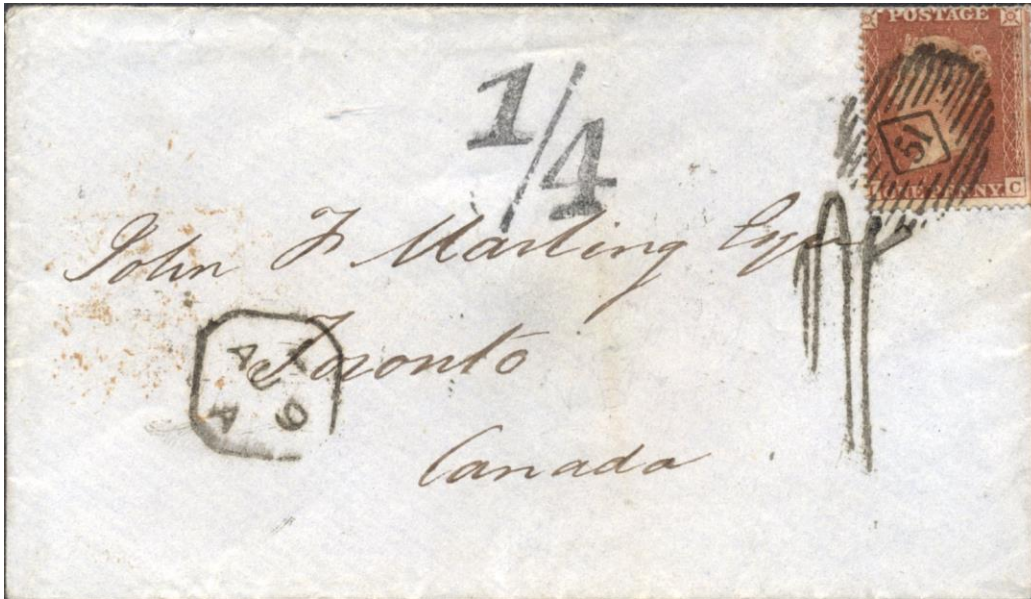 POSTAGE
ONE PENNY
C
51
1/4
John F Marling Esqr
Toronto
Canada